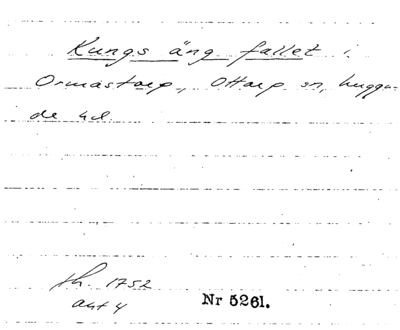 Kungs äng fallet i
Ormastorp, Ottarp sn, Luggu-
de hd
sh. 1752
akt 4
Nr 5261.